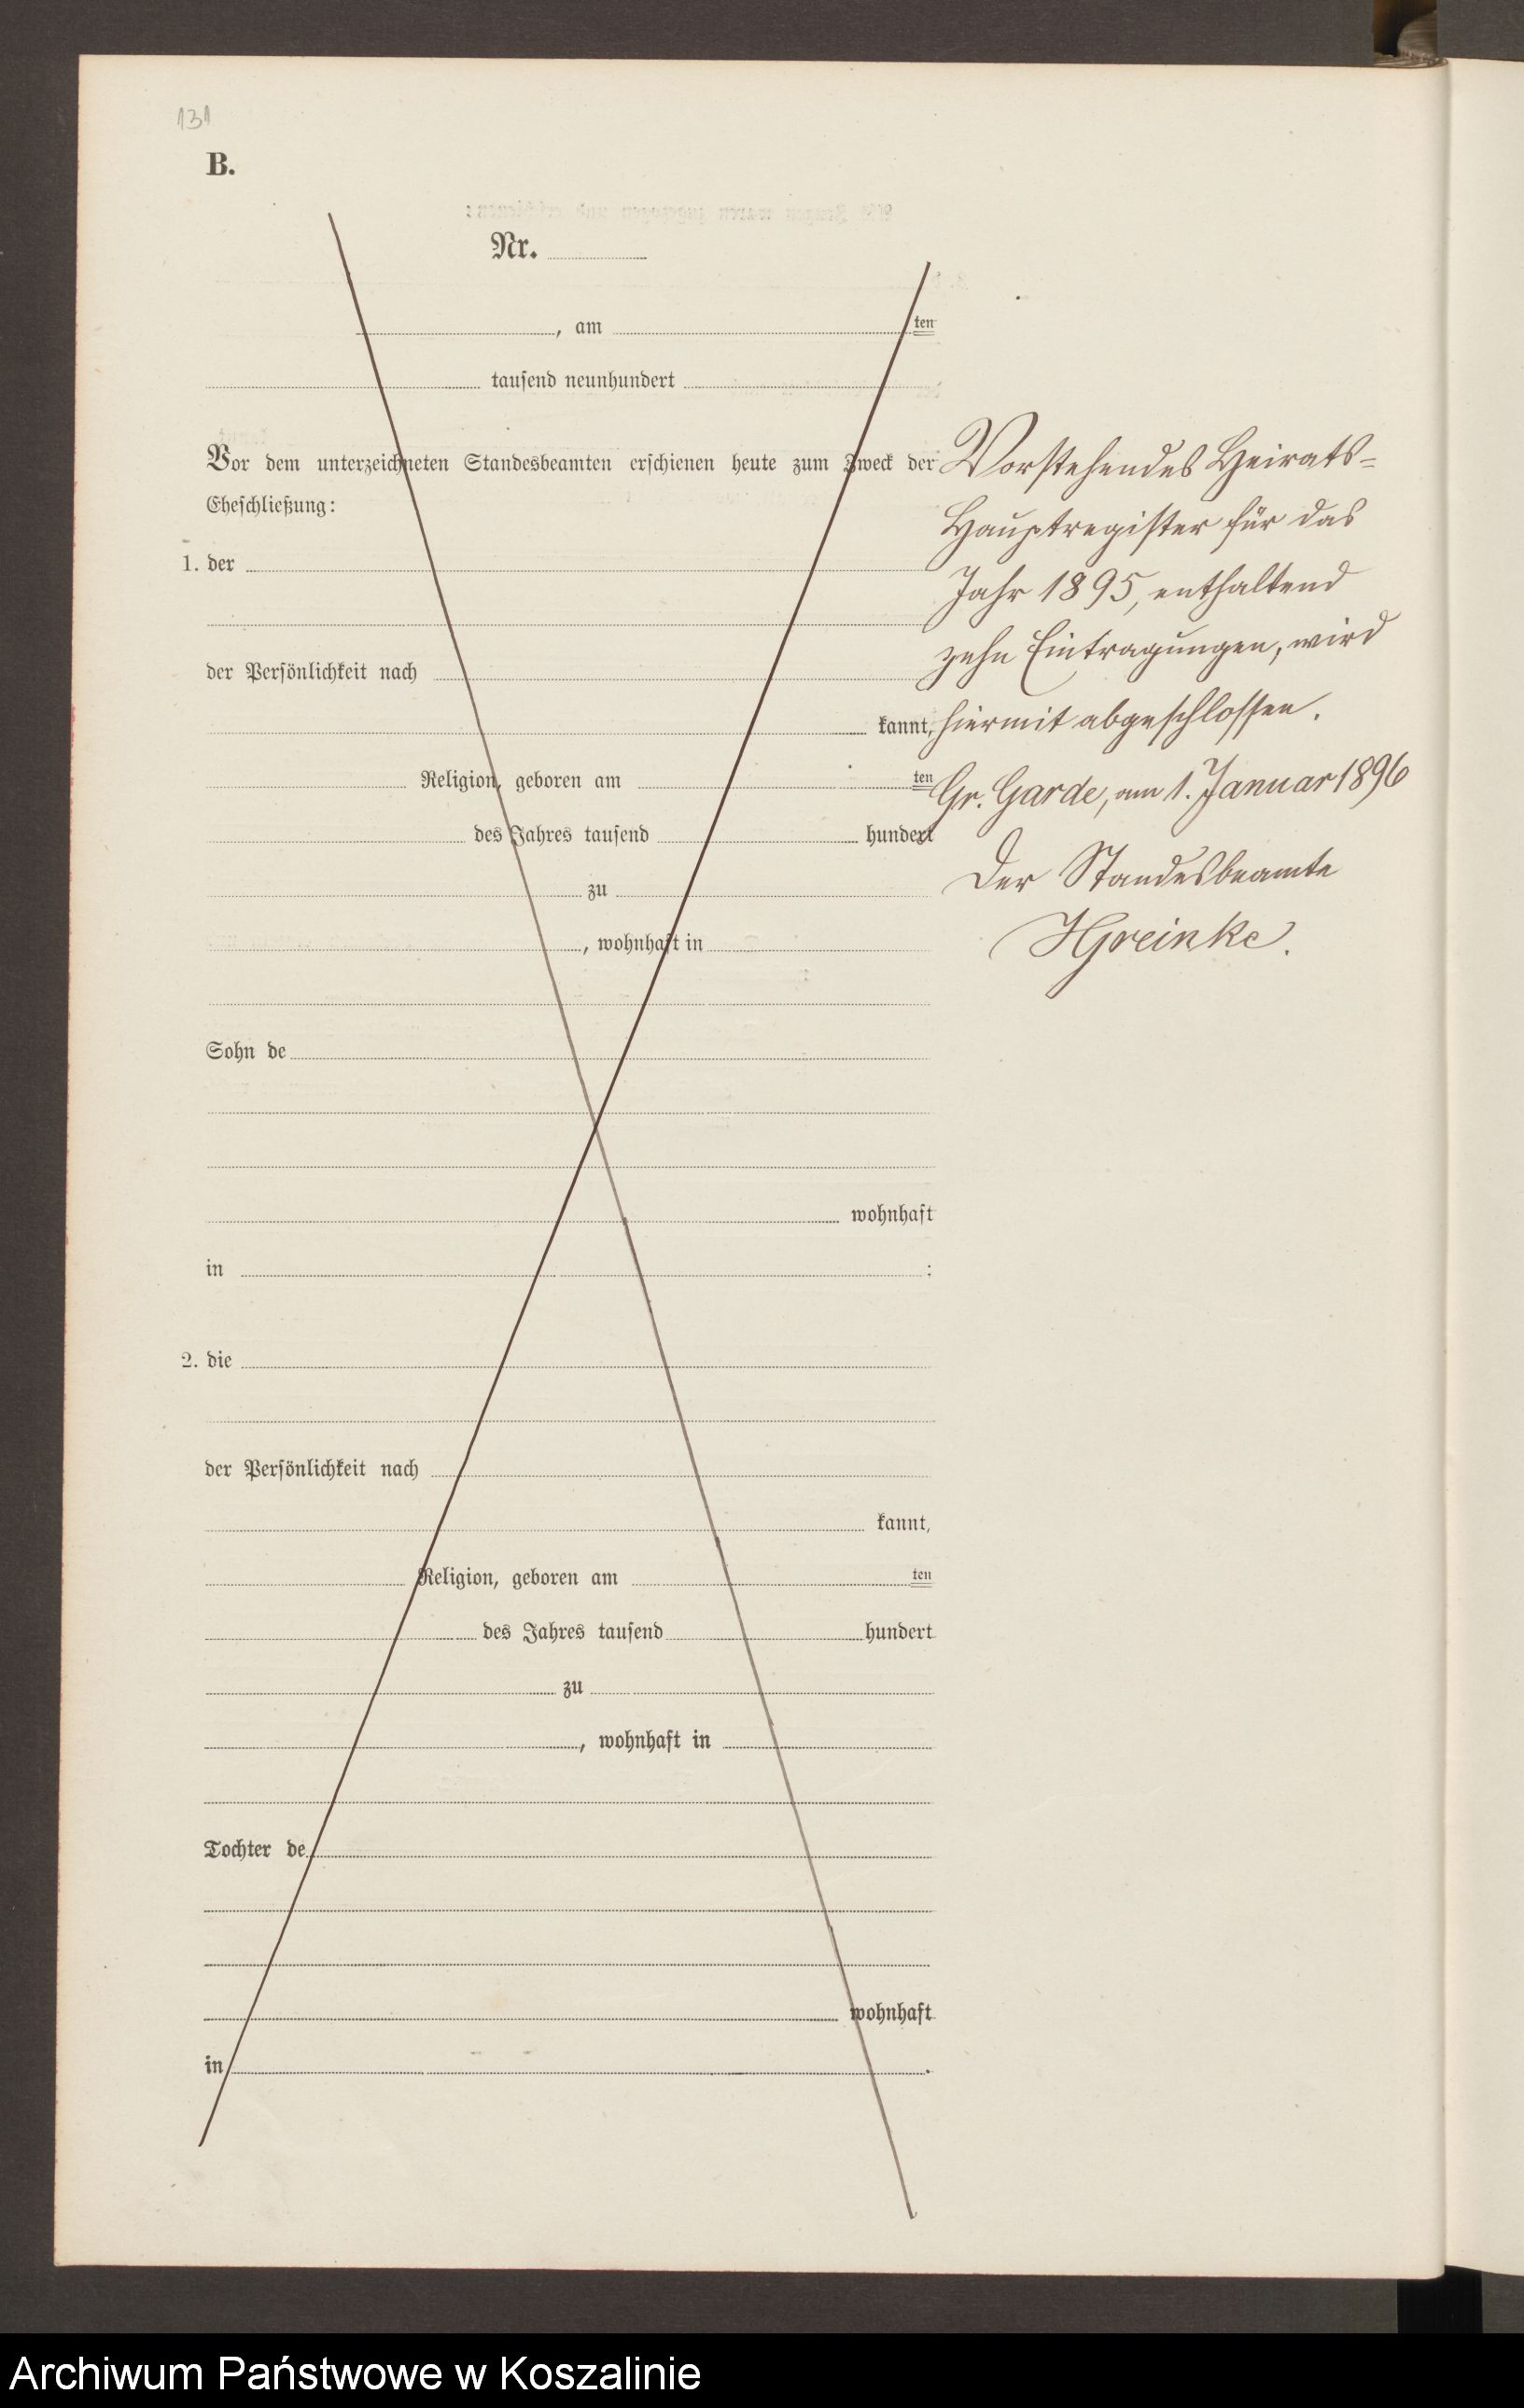 131
B.
Nr.
, am ten
tausend neunhundert
Vor dem unterzeichneten Standesbeamten erschienen heute zum Zweck der
Eheschließung:
1. der
der Persönlichkeit nach
kannt,
Religion, geboren am ten
des Jahres tausend hundert
zu
, wohnhaft in
Sohn de
wohnhaft
in :
2. die
der Persönlichkeit nach
kannt,
Religion, geboren am ten
des Jahres tausend hundert
zu
, wohnhaft in
Tochter de
wohnhaft
in .
Vorstehendes Heirats-
Hauptregister für das
Jahr 1895, enthaltend
zehn Eintragungen, wird
hiermit abgeschlossen.
Gr. Garde, am 1. Januar 1896
Der Standesbeamte
Archiwum Państwowe w Koszalinie